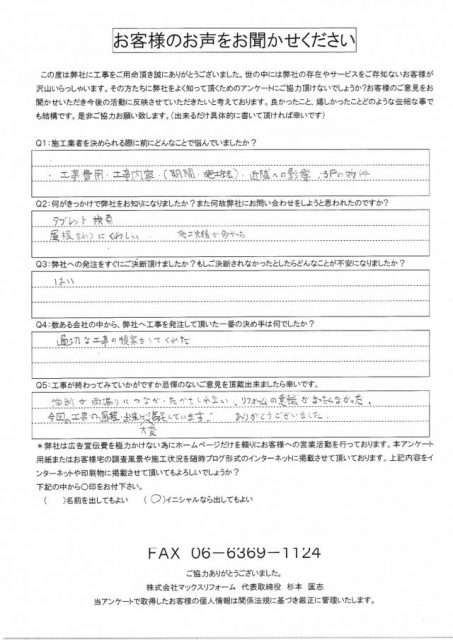 お客様のお声をお聞かせください
この度は弊社に工事をご用命頂き誠にありがとうございました。世の中には弊社の存在やサービスをご存知ないお客様が
沢山いらっしゃいます。その方たちに弊社をよく知って頂くためのアンケートにご協力頂けないでしょうか?お客様のご意見をお
聞かせいただき今後の活動に反映させていただきたいと考えております。良かったこと、嬉しかったことどのような些細な事で
も結構です。是非ご協力お願い致します。(出来るだけ具体的に書いて頂ければ幸いです)
Q1:施工業者を決められる際に前にどんなことで悩んでいましたか?
・工事費用・工事内容・(期間・施工法)・近隣への影響
Q2:何がきっかけで弊社をお知りになりましたか?また何故弊社にお問い合わせをしようと思われたのですか?
タブレット 検索
屋根まわりにくわしい 施工実績が多かった
Q3:弊社への発注をすぐにご決断頂けましたか?もしご決断されなかったとしたらどんなことが不安になりましたか?
はい
Q4:数ある会社の中から、弊社へ工事を発注して頂いた一番の決め手は何でしたか?
適切な工事の提案をしてくれた
Q5:工事が終わってみていかがですか忌憚のないご意見を頂戴出来ましたら幸いです。
油断が雨漏りにつながったかもしれない、リフォームの意識がまったくなかった。
今回、工事の過程、出来に満足しています。ありがとうございました。
大変
*弊社は広告宣伝費を極力かけない為にホームページだけを頼りにお客様への営業活動を行っております。本アンケート
用紙またはお客様宅の調査風景や施工状況を随時ブログ形式のインターネットに掲載させて頂いております。上記内容をイ
ンターネットや印刷物に掲載させて頂いてもよろしいでしょうか?
下記の中から○印をお付下さい。
( )名前を出してもよい (○)イニシャルなら出してもよい
FAX 06-6369-1124
ご協力ありがとうございました。
株式会社マックスリフォーム 代表取締役 杉本 匡志
当アンケートで取得したお客様の個人情報は関係法規に基づき厳正に管理いたします。